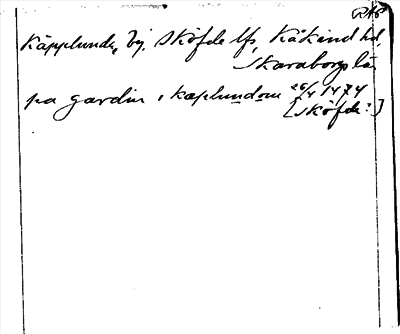 RAP
Käpplunda, by, Sköfde lfs, Kåkind hd,
Skaraborgs län
pa gardin i kaplundom 26/4 1474
[Sköfde?]